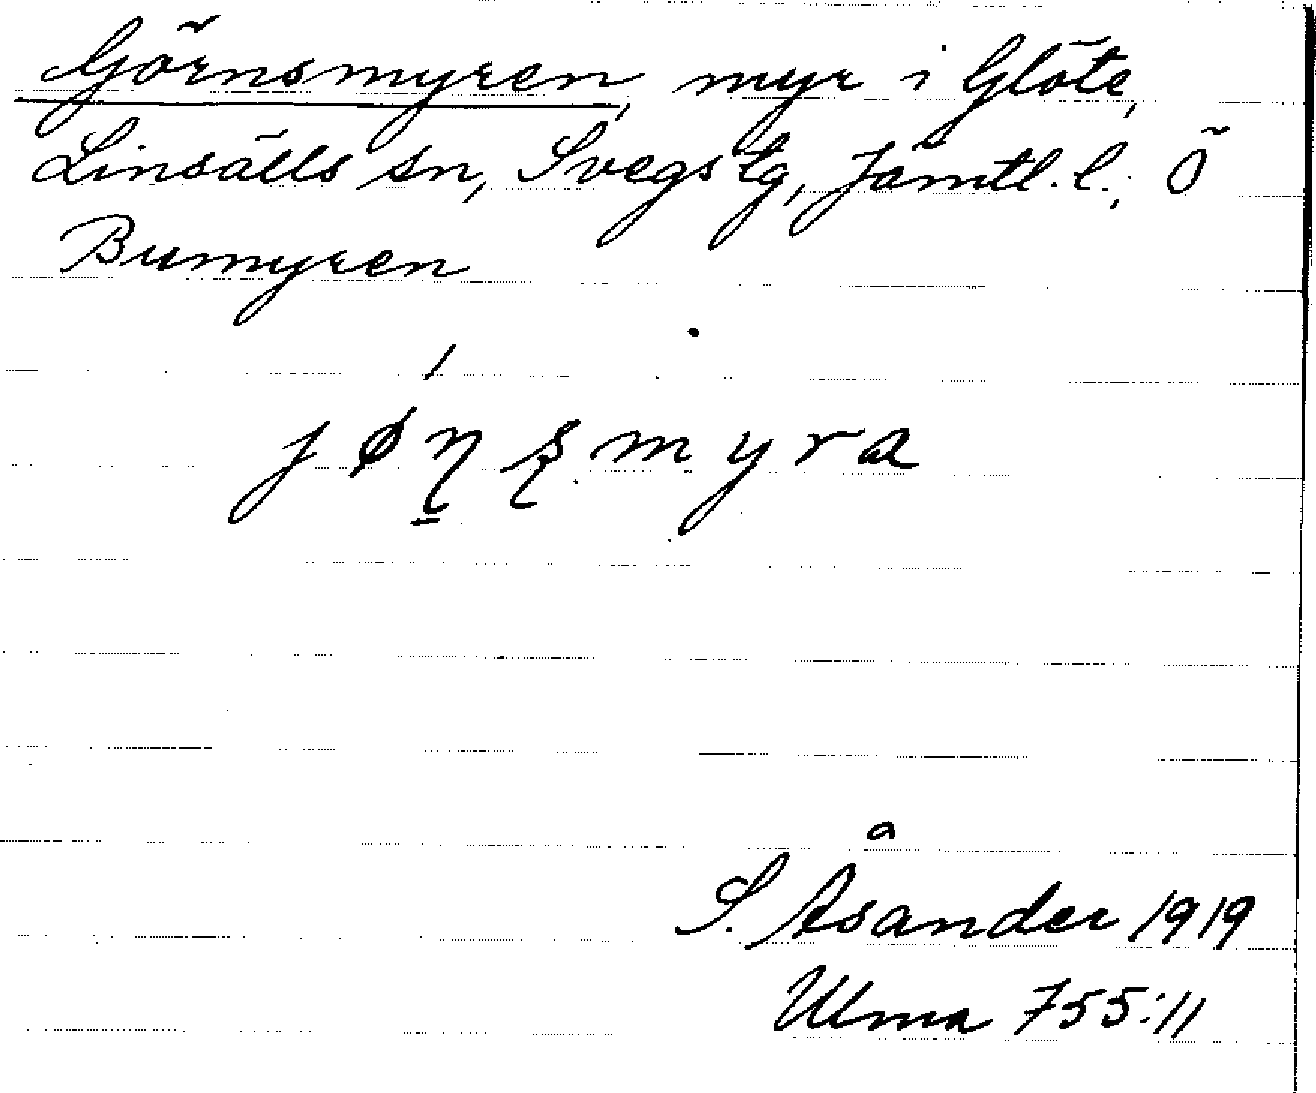 Görnsmyren, myr i Glöte,
Linsälls sn, Svegs tg, Jämtl. l.; Ö
Bumyren
jøṇʂmyra
S. Åsander 1919
Ulma 755:11